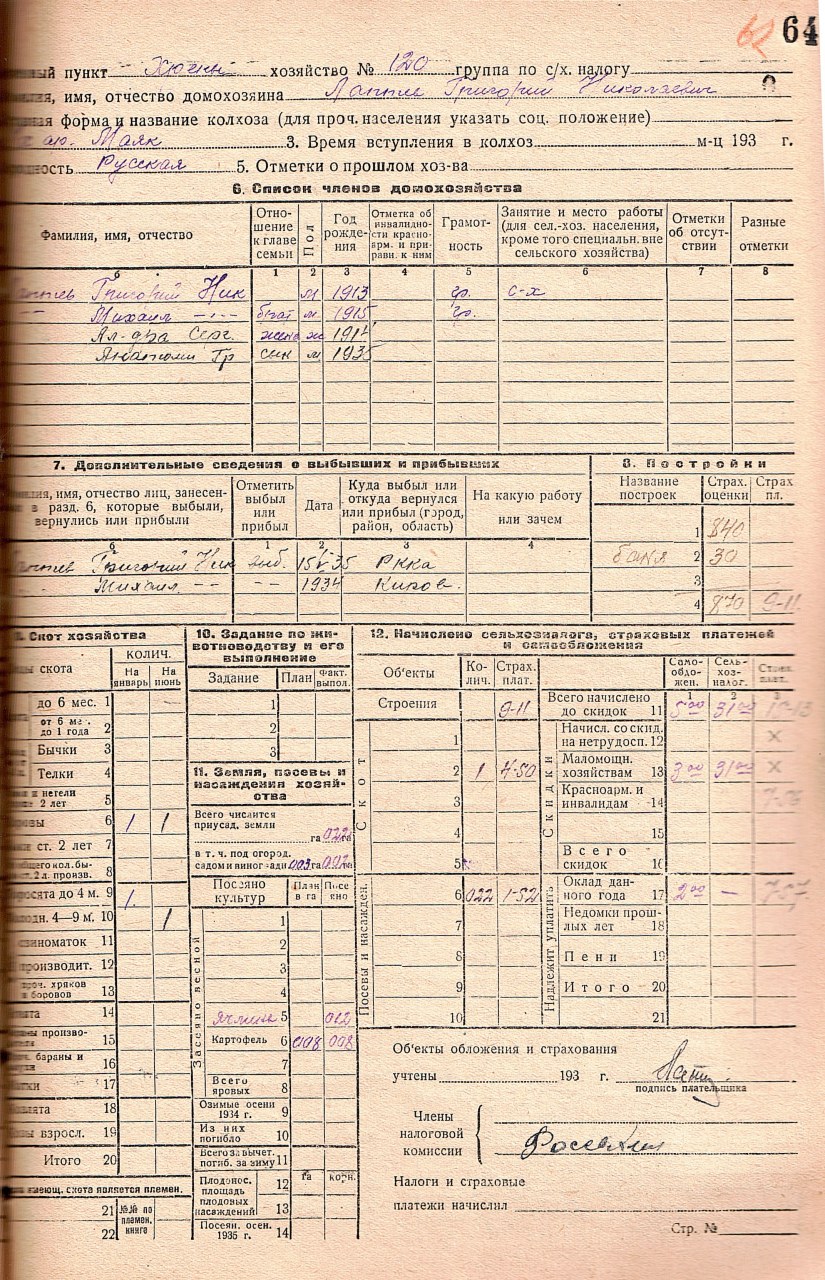 64
ный пункт Хюгны хозяйство № 120 группа по с/х. налогу
имя, отчество домохозяина Григорий Николаевич
форма и название колхоза (для проч. населения указать соц. положение)
Маяк 3. Время вступления в колхоз м-ц 193 г.
Русская 5. Отметки о прошлом хоз-ва
6. Список членов домохозяйства
Фамилия, имя, отчество Отношение к главе семьи Пол Год рождения Отметка об инвалидности красноарм. и приравн. к ним Грамотность Занятие и место работы (для сел.-хоз. населения, кроме того специальн. вне сельского хозяйства) Отметки об отсутствии Разные отметки
б 1 2 3 4 5 6 7 8
Григорий Ник м 1913 гр. с-х
Михаил -"- брат м 1915 гр.
Ал-дра Серг. жена ж 1914
Анатолий Гр сын м 1935
7. Дополнительные сведения о выбывших и прибывших
Фамилия, имя, отчество лиц, занесенных в разд. 6, которые выбыли, вернулись или прибыли Отметить выбыл или прибыл Дата Куда выбыл или откуда вернулся или прибыл (город, район, область) На какую работу или зачем
б 1 2 3 4
Григорий Ник выб. 15/V-35 Ркка
Михаил -"- -"- 1934 Киров.
8. Постройки
Название построек Страх. оценки Страх пл.
1 840
баня 2 30
3
4 870 9-11
Скот хозяйства
скота КОЛИЧ. На январь На июнь
до 6 мес. 1 —
от 6 мес. до 1 года 2
Бычки 3
Телки 4
2 лет 5
6 1 1
ст. 2 лет 7
8
до 4 м. 9 1
4—9 м. 10 1
свиноматок 11
производит. 12
хряков и боровов 13
14
произво- 15
бараны и 16
17
18
взросл. 19
Итого 20
имеющ. скота является племен.
21 №№ по племен. книге
22
10. Задание по животноводству и его выполнение
Задание План Факт. выпол.
1
2
3
11. Земля, посевы и насаждения хозяйства
Всего числится приусад. земли га 022 га
в т. ч. под огород. садом и виноградн. 003 га 002 га
Посеяно культур План в га Посеяно
Засеяно весной
1
2
3
4
ячмень 5 012
Картофель 6 008 008
7
Всего яровых 8
Озимые осени 1934 г. 9
Из них погибло 10
Всего за вычет. погиб. за зиму 11
Плодонос. площадь плодовых насаждений га корн.
12
13
Посеян. осен. 1935 г. 14
12. Начислено сельхозналога, страховых платежей и самообложения
Об'екты Колич. Страх. плат.
Строения 9-11
Скот
1
2 1 4-50
3
4
5
Посевы и насажден.
6 022 1-52
7
8
9
10
Самообложен. Сельхозналог. Страх. плат.
1 2 3
Всего начислено до скидок 11 5 00 31 00 15-13
Скидки
Начисл. со скид. на нетрудосп. 12 ×
Маломощн. хозяйствам 13 3 00 31 00 ×
Красноарм. и инвалидам 14 7-56
15
Всего скидок 16
Надлежит уплатить
Оклад данного года 17 2 00 — 7-57
Недомки прошлых лет 18
Пени 19
Итого 20
21
Об'екты обложения и страхования
учтены 193 г.
подпись плательщика
Члены налоговой комиссии
Налоги и страховые
платежи начислил
Стр. №